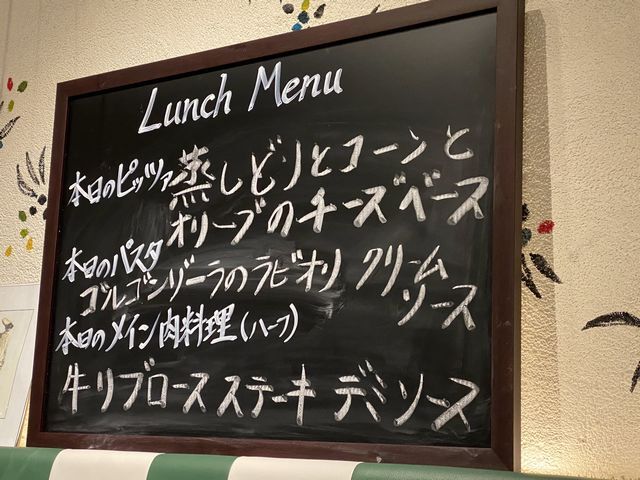 Lunch Menu
本日のピッツァ 蒸しどりとコーンと
オリーブのチーズベース
本日のパスタ
ゴルゴンゾーラのラビオリ クリーム
ソース
本日のメイン肉料理(ハーフ)
牛リブロースステーキ デミソース